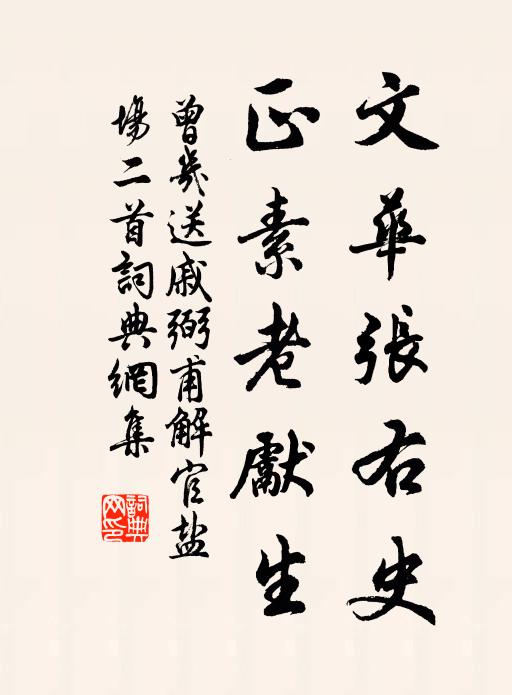 文華張右史
正素老獻生
曾幾送戚弼甫解官盐
場二首詞典網集
詞典
网印